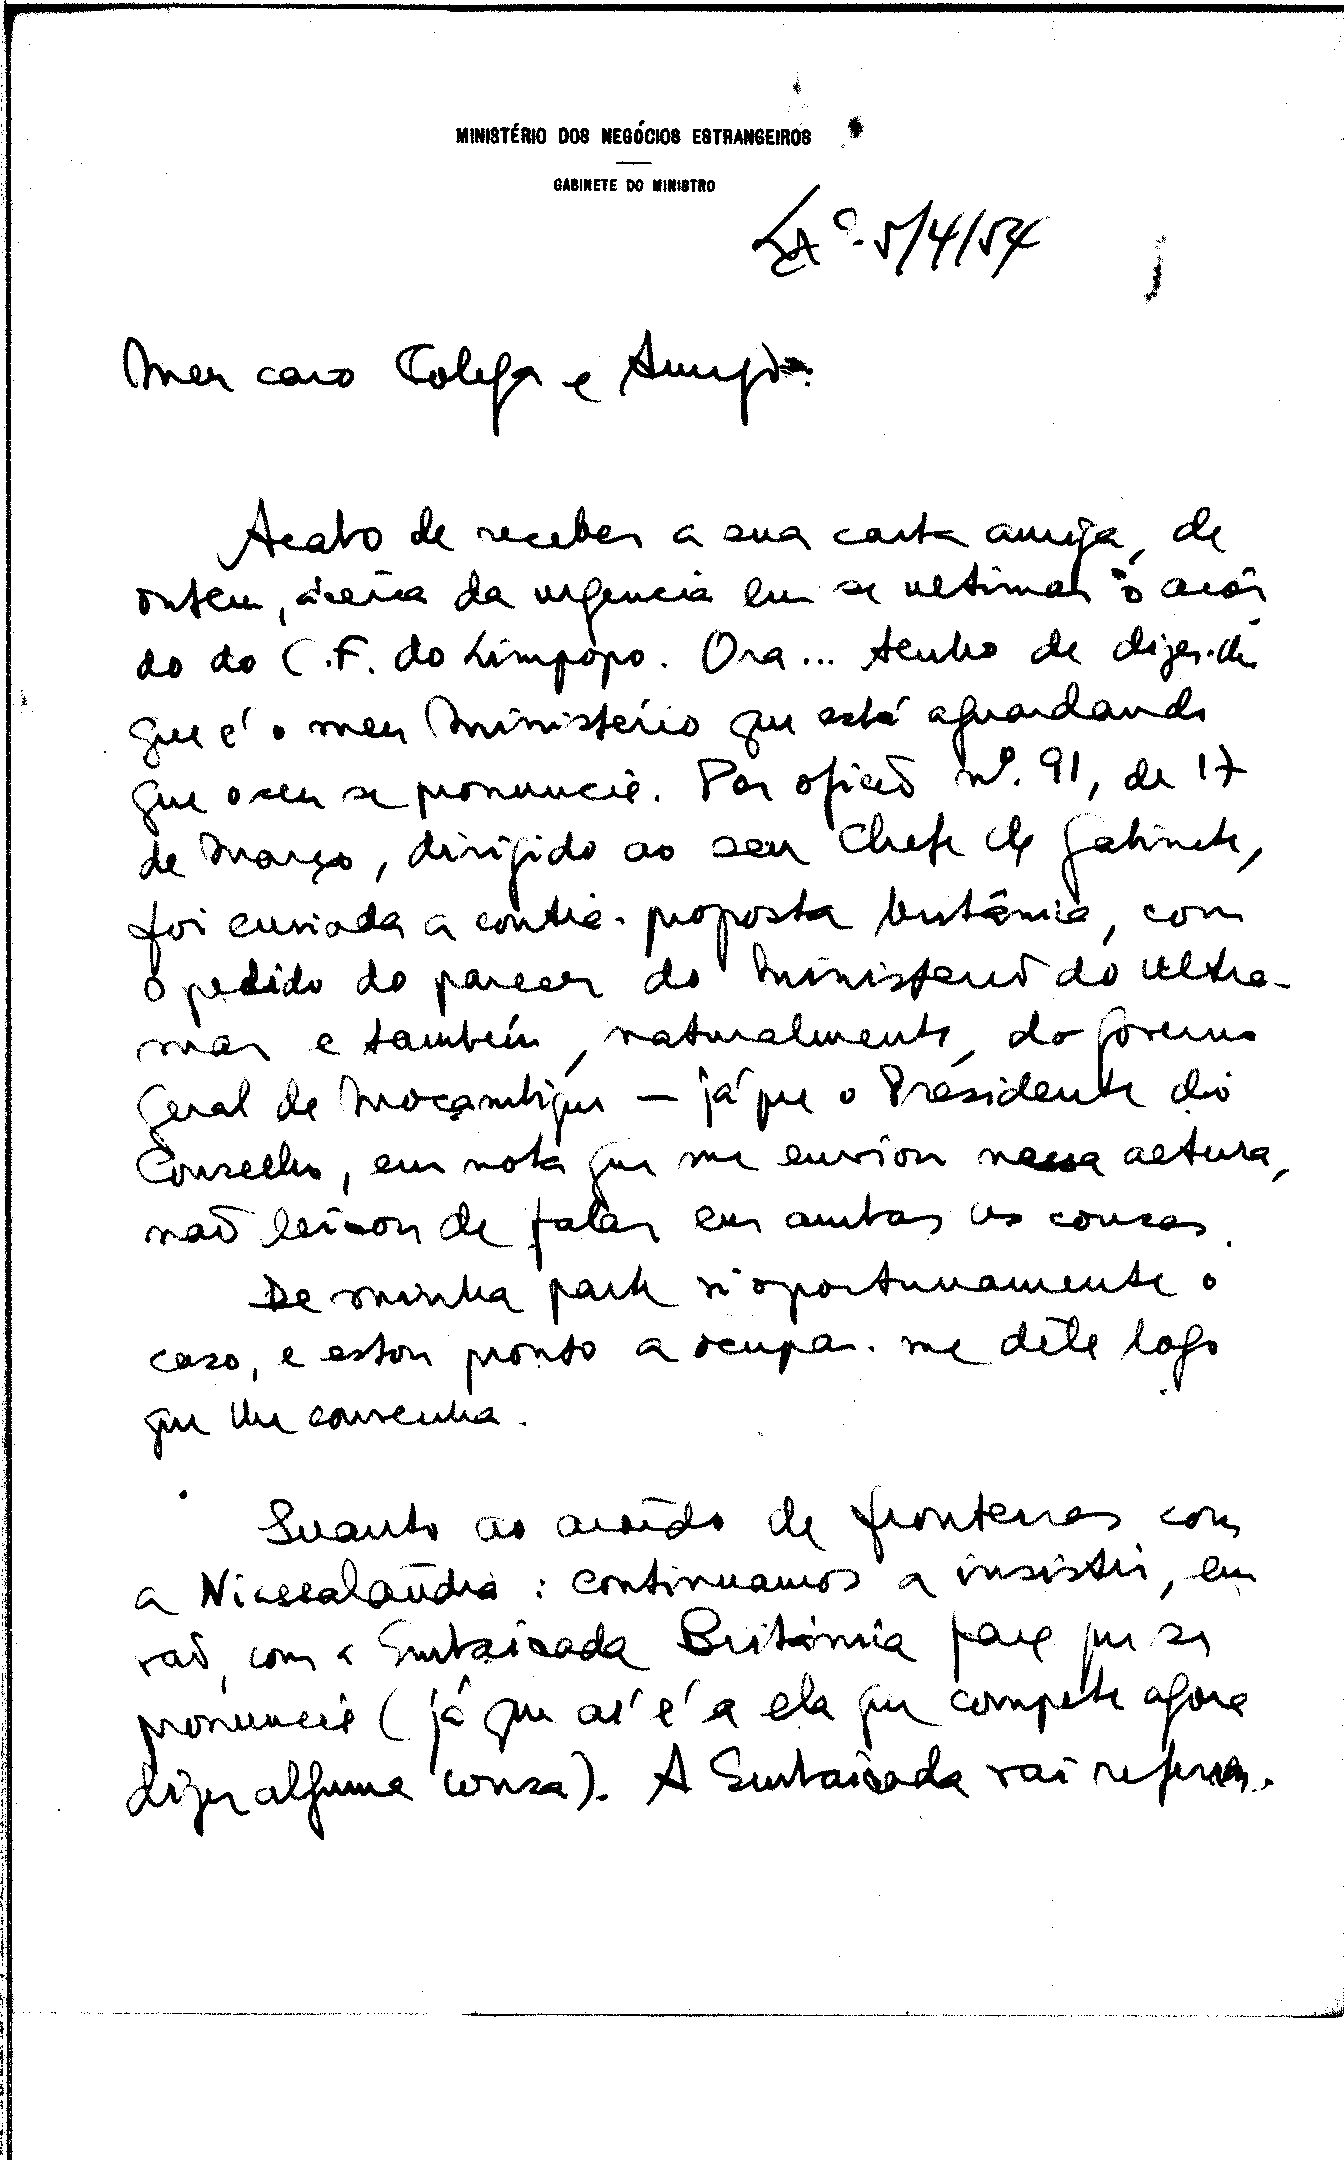 MINISTÉRIO DOS NEGÓCIOS ESTRANGEIROS
GABINETE DO MINISTRO
Lxª. 5/4/54
Meu caro Colega e Amigo:
Acabo de receber a sua carta amiga, de
ontem, àcêrca da urgencia em se ultimar o acôr
do do C.F. do Limpopo. Ora... tenho de dizer-lhe
que é o meu Ministério que está aguardando
que o seu se pronuncie. Por oficio nº. 91, de 17
de Março, dirigido ao seu Chefe de Gabinete,
foi enviada a contra-proposta britânica, com
o pedido do parecer do Ministerio do Ultra-
mar e também, naturalmente, do Governo
Geral de Moçambique — já que o Presidente do
Conselho, em nota que me enviou nessa altura,
não deixou de falar em ambas as cousas.
De minha parte vi oportunamente o
caso, e estou pronto a ocupar-me dêle logo
que lhe convenha.
Quanto ao acôrdo de fronteiras com
a Niassalândia: continuamos a insistir, em
vão, com a Embaixada Britânica para que se
pronuncie (já que aí é a ela que compete agora
dizer alguma cousa). A Embaixada vai referin-